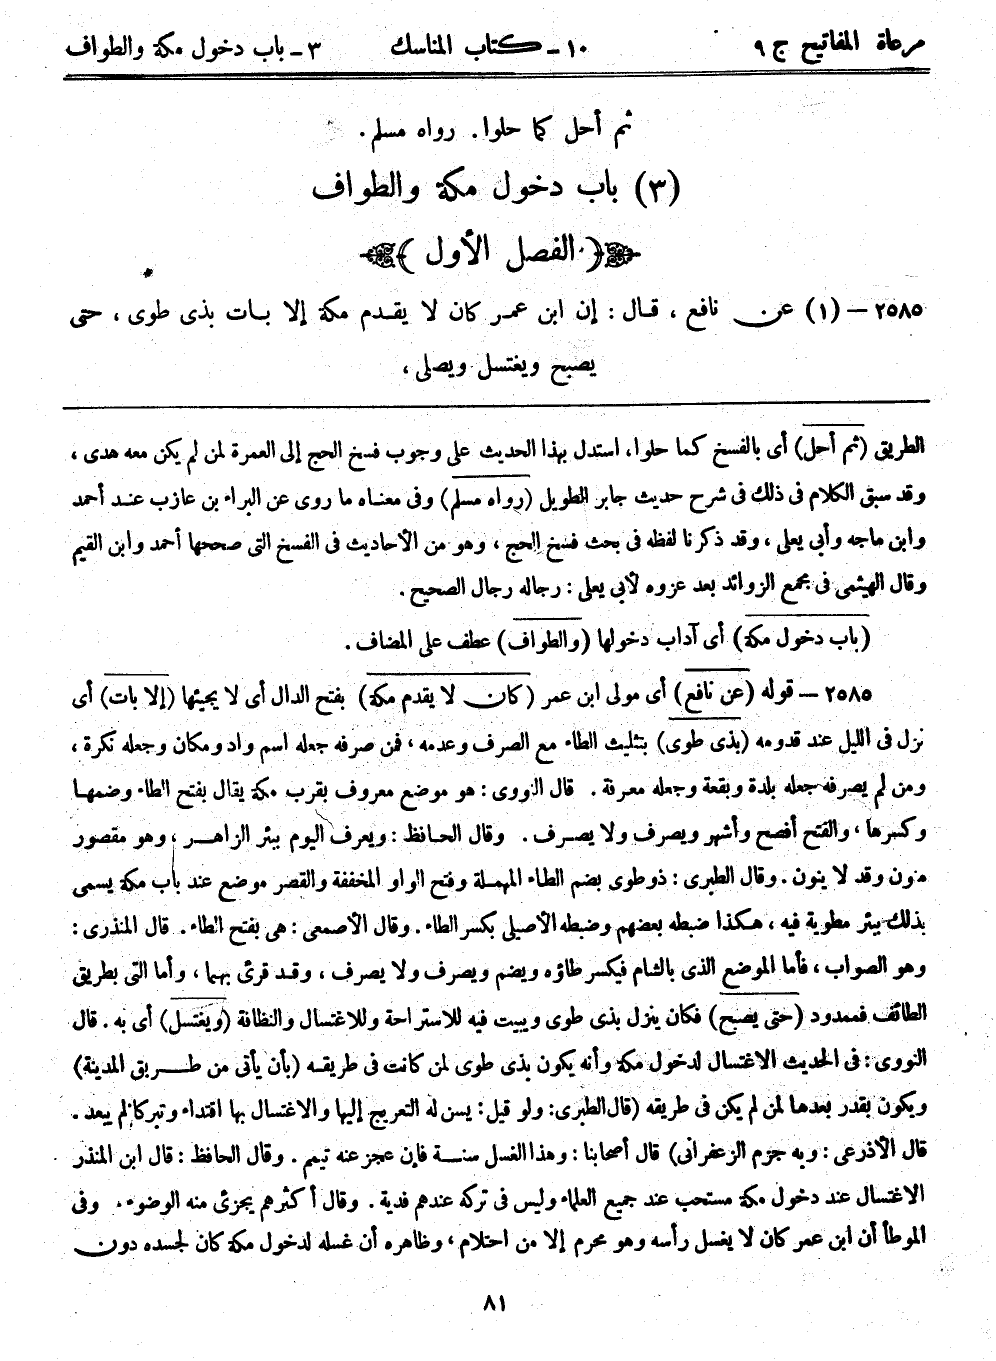 مرعاة المفاتيح ج ٩ ١٠ - كتاب المناسك ٣ - باب دخول مكة والطواف
ثم أحل كما حلوا. رواه مسلم.
(٣) باب دخول مكة والطواف
﴿ الفصل الأول ﴾
٢٥٨٥ - (١) عن نافع، قال: إن ابن عمر كان لا يقدم مكة إلا بات بذى طوى، حتى
يصبح ويغتسل ويصلى،
الطريق (ثم أحل) أى بالفسخ كما حلوا، استدل بهذا الحديث على وجوب فسخ الحج إلى العمرة لمن لم يكن معه هدى،
وقد سبق الكلام فى ذلك فى شرح حديث جابر الطويل (رواه مسلم) وفى معناه ما روى عن البراء بن عازب عند أحمد
وابن ماجه وأبي يعلى، وقد ذكرنا لفظه فى بحث فسخ الحج، وهو من الأحاديث فى الفسخ التى صححها أحمد وابن القيم
وقال الهيثمى فى مجمع الزوائد بعد عزوه لأبي يعلى: رجاله رجال الصحيح.
(باب دخول مكة) أى آداب دخولها (والطواف) عطف على المضاف.
٢٥٨٥ - قوله (عن نافع) أى مولى ابن عمر (كان لا يقدم مكة) بفتح الدال أى لا يجيئها (إلا بات) أى
نزل فى الليل عند قدومه (بذى طوى) بتثليث الطاء مع الصرف وعدمه، فمن صرفه جعله اسم واد ومكان وجعله نكرة،
ومن لم يصرفه جعله بلدة وبقعة وجعله معرفة. قال النووى: هو موضع معروف بقرب مكة يقال بفتح الطاء وضمها
وكسرها، والفتح أفصح وأشهر ويصرف ولا يصرف. وقال الحافظ: ويعرف اليوم ببئر الزاهر، وهو مقصور
منون وقد لا ينون. وقال الطبرى: ذو طوى بضم الطاء المهملة وفتح الواو المخففة والقصر موضع عند باب مكة يسمى
بذلك ببئر مطوية فيه، هكذا ضبطه بعضهم وضبطه الأصيلى بكسر الطاء. وقال الأصمعى: هى بفتح الطاء. قال المنذرى:
وهو الصواب، فأما الموضع الذى بالشام فيكسر طاؤه ويضم ويصرف ولا يصرف، وقد قرئ بهما، وأما التى بطريق
الطائف فممدود (حتى يصبح) فكان ينزل بذى طوى ويبيت فيه للاستراحة وللاغتسال والنظافة (ويغتسل) أى به. قال
النووى: فى الحديث الاغتسال لدخول مكة وأنه يكون بذى طوى لمن كانت فى طريقه (بأن يأتى من طريق المدينة)
ويكون بقدر بعدها لمن لم يكن فى طريقه (قال الطبرى: ولو قيل: يسن له التعريج إليها والاغتسال بها اقتداء وتبركا لم يبعد.
قال الأذرعى: وبه جزم الزعفرانى) قال أصحابنا: وهذا الغسل سنة فإن عجز عنه تيمم. وقال الحافظ: قال ابن المنذر
الاغتسال عند دخول مكة مستحب عند جميع العلماء وليس فى تركه عندهم فدية. وقال أكثرهم يجزئ منه الوضوء. وفى
الموطأ أن ابن عمر كان لا يغسل رأسه وهو محرم إلا من احتلام، وظاهره أن غسله لدخول مكة كان لجسده دون
٨١